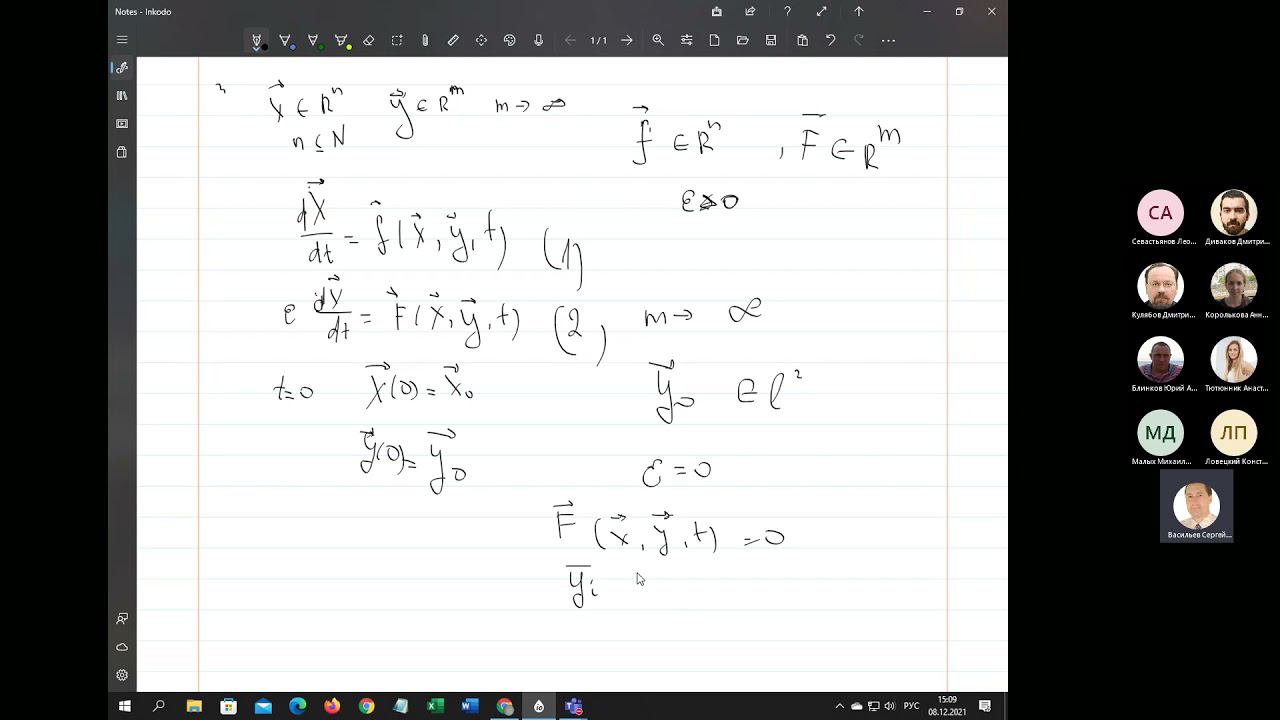 Notes - Inkodo
1/1
x⃗ ∈ Rⁿ y⃗ ∈ Rᵐ m → ∞
n ≤ N
f⃗ ∈ Rⁿ , F⃗ ∈ Rᵐ
dx⃗/dt = f⃗(x⃗, y⃗, t) (1)
ε dy⃗/dt = F⃗(x⃗, y⃗, t) (2) m → ∞
t=0 x⃗(0) = x⃗₀ y⃗₀ ∈ l²
y⃗(0) = y⃗₀ ε = 0
F⃗ (x⃗, y⃗, t) = 0
y̅ᵢ
СА
Севастьянов Лео...
Диваков Дмитри...
Кулябов Дмитри...
Королькова Анн...
Блинков Юрий А...
Тютюнник Анаст...
МД
Малых Михаил...
ЛП
Ловецкий Конст...
Васильев Сергей...
РУС
15:09
08.12.2021